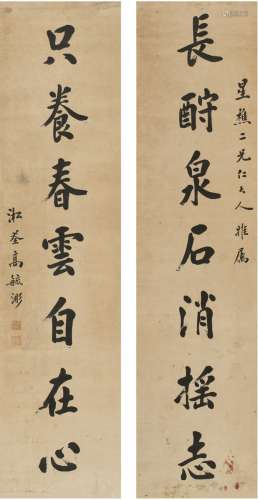 長酧泉石消搖志
星樵二兄仁大人雅屬
只養春雲自在心
淞荃高毓浵